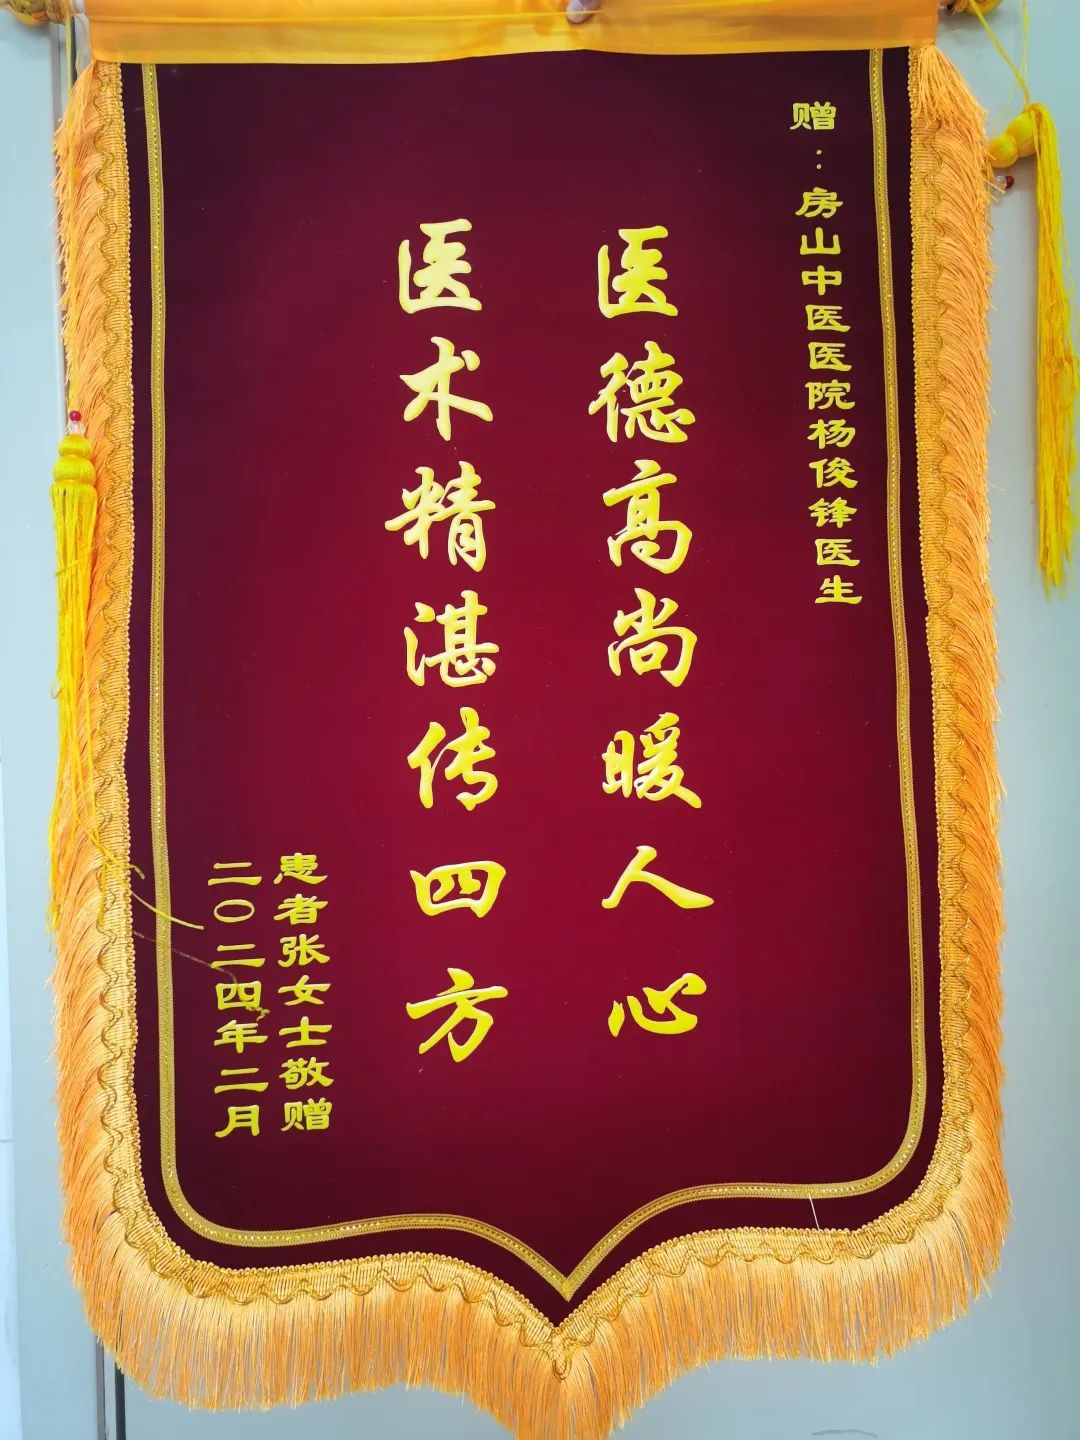 赠：房山中医医院杨俊锋医生
医德高尚暖人心
医术精湛传四方
患者张女士敬赠
二〇二四年二月